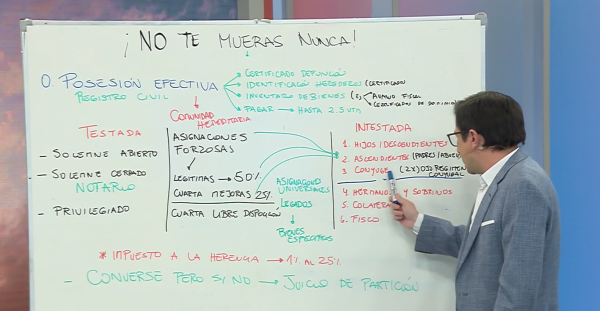 ¡NO TE MUERAS NUNCA!
0. POSESIÓN EFECTIVA
REGISTRO CIVIL
CERTIFICADO DEFUNCIÓN
IDENTIFICACIÓN HEREDEROS (CERTIFICADOS
INVENTARIO DE BIENES (2)
AVALUO FISCAL
CERTIFICADO DE DOMINIO
PAGAR → HASTA 2.5 UTM
COMUNIDAD HEREDITARIA
TESTADA
- SOLEMNE ABIERTO
- SOLEMNE CERRADO
NOTARIO
- PRIVILEGIADO
ASIGNACIONES
FORZOSAS
LEGITIMAS → 50%
CUARTA MEJORAS 25%
CUARTA LIBRE DISPOSICION
ASIGNACION
UNIVERSALES
LEGADOS
BIENES
ESPECIFICOS
INTESTADA
1. HIJOS/DESCENDIENTES
2. ASCENDIENTES (PADRES/ABUELOS
3. CONYUGE (2X) OJO REGIMEN
CONYUGAL
4. HERMANOS Y SOBRINOS
5. COLATERA
6. FISCO
* IMPUESTO A LA HERENCIA → 1% AL 25%
- CONVERSE PERO SI NO → JUICIO DE PARTICIÓN